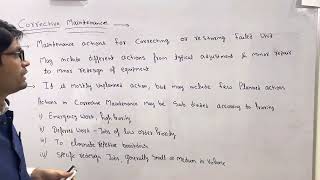 Corrective Maintenance
Maintenance actions for correcting or restoring failed Unit
May include different actions from typical adjustment & minor repair
to minor redesign of equipment
It is mostly unplanned action, but may include few Planned actions
Actions in Corrective Maintenance may be Sub divided according to
i) Emergency work, high
ii) Deferred work - Jobs of low order Priority
iii) To eliminate breakdowns
iv) Specific redesign Jobs, generally small or medium in Volume